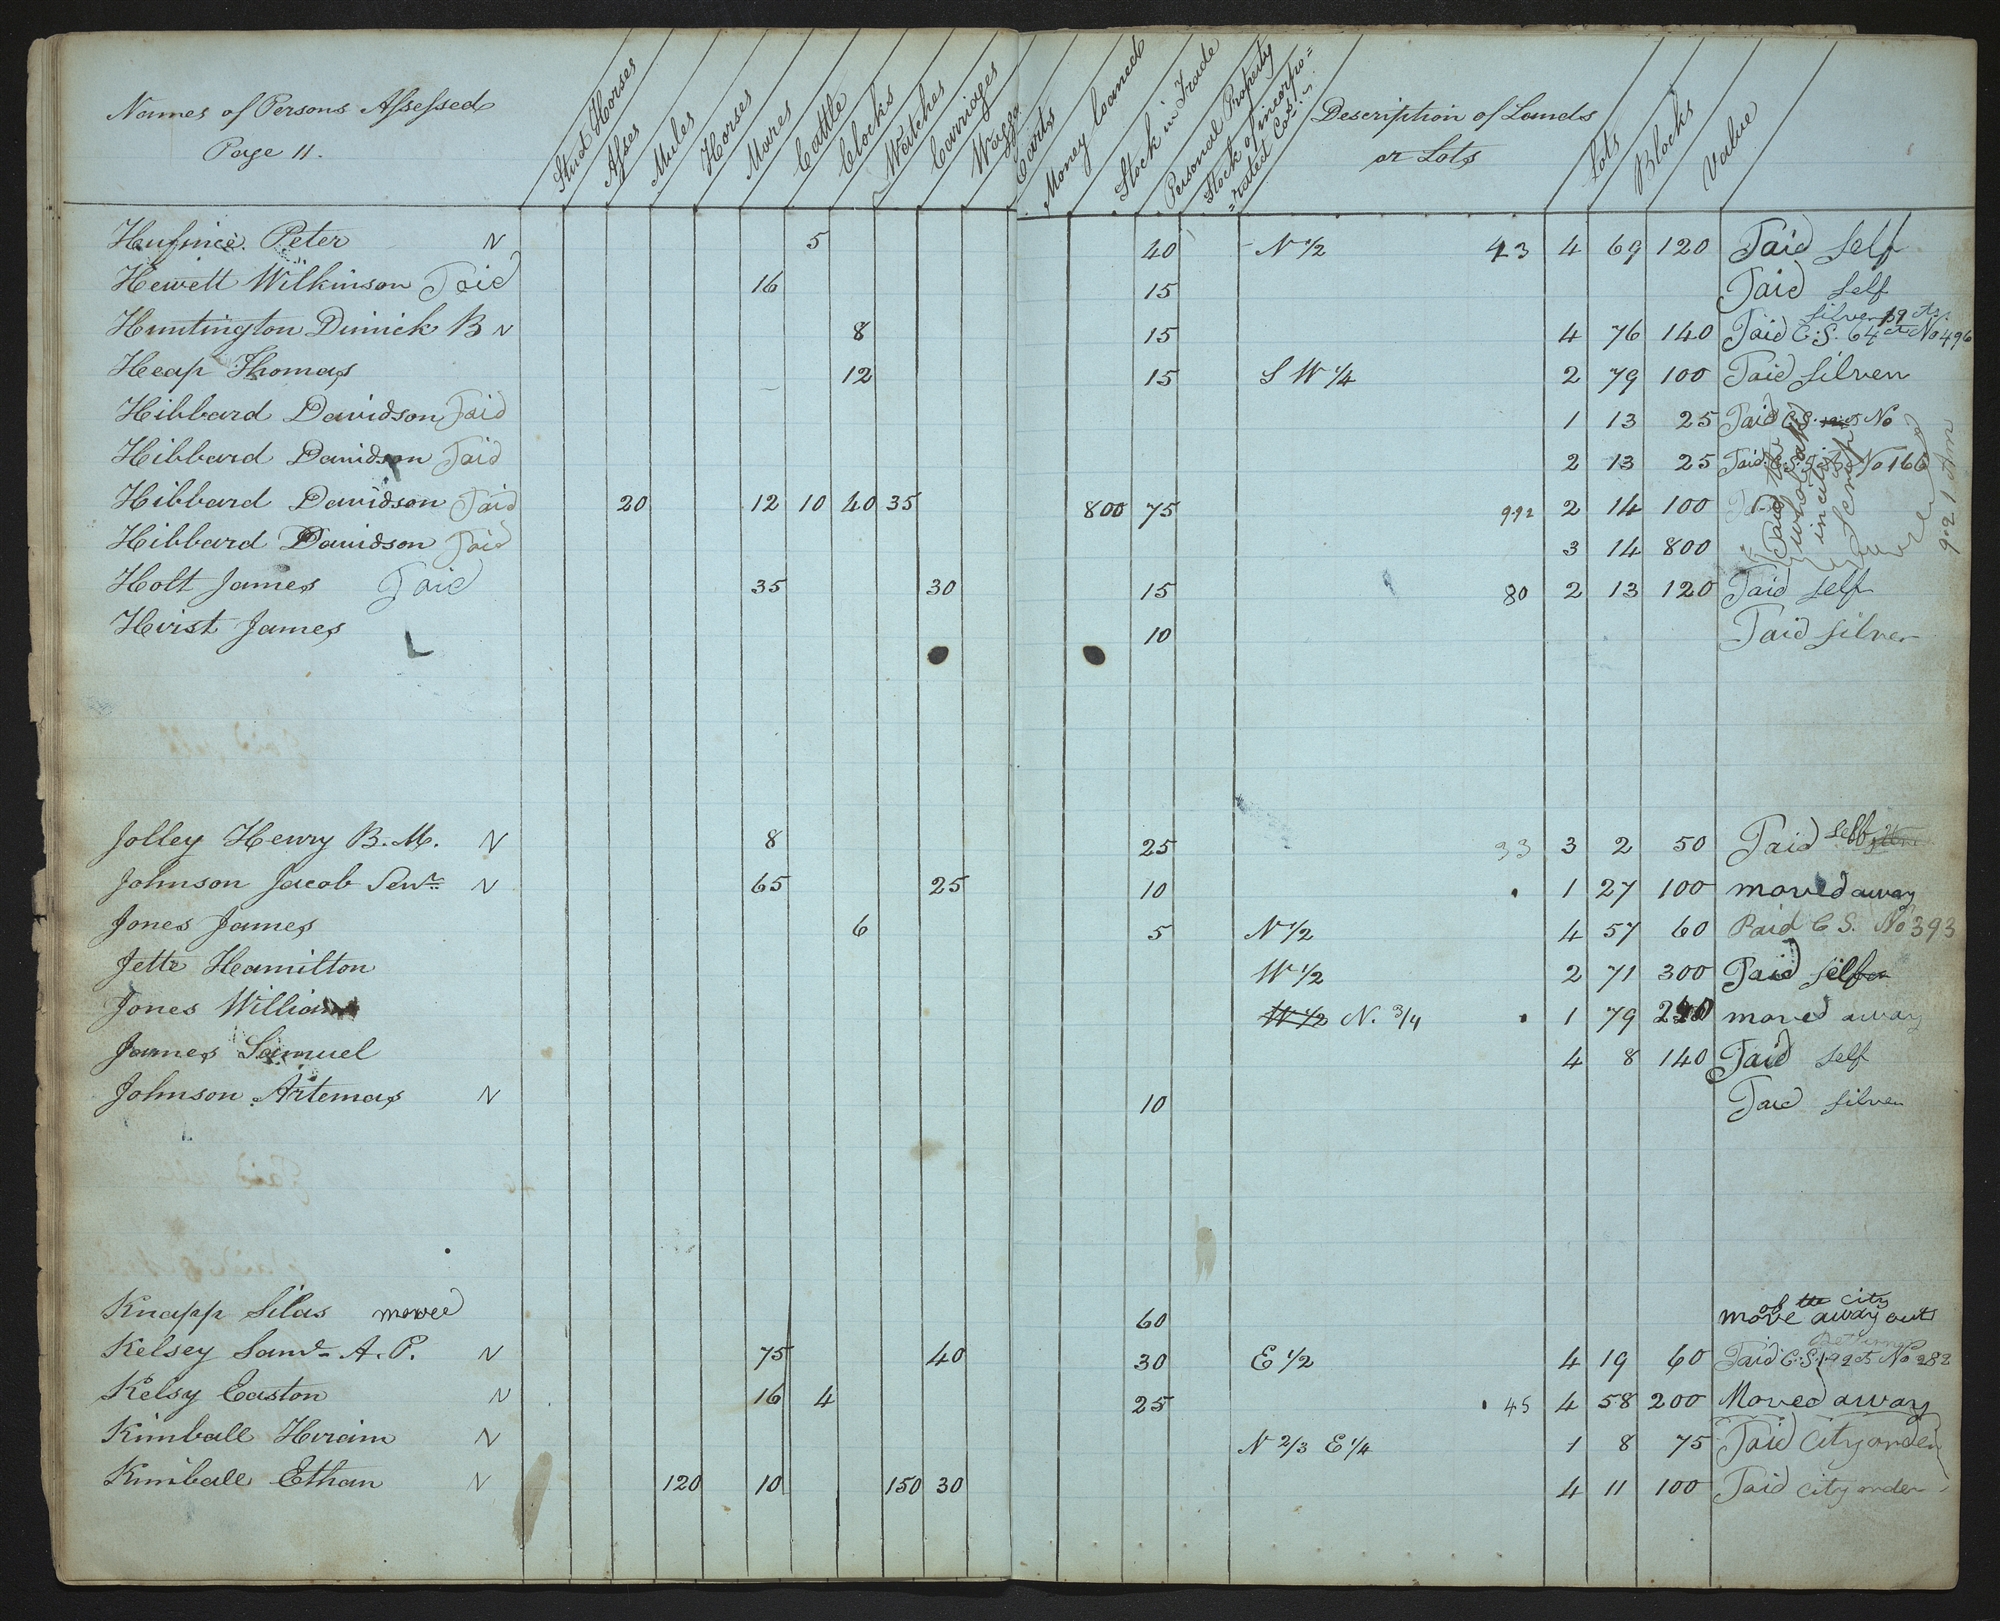 Names of Persons Assessed
Page 11.
Stud Horses
Asses
Mules
Horses
Mares
Cattle
Clocks
Watches
Carriages
Waggs
Carts
Money loaned
Stock in Trade
Personal Property
Stock of incorpo=
=rated Cos.
Description of Lands
or Lots
Lots
Blocks
Value
Peter N 5 40 N 1/2 43 4 69 120 Paid self
Hewett Wilkinson Paid 16 15 Paid self
silver 19 cts.
Huntington Dimick B N 8 15 4 76 140 Paid C.S. 64 cts No 496
Heap Thomas 12 15 S W 1/4 2 79 100 Paid silver
Hibbard Davidson Paid 1 13 25 Paid C.S. No
Hibbard Davidson Paid 2 13 25 Paid C.S. No 166
Hibbard Davidson Paid 20 12 10 40 35 800 75 992 2 14 100
Hibbard Davidson Paid 3 14 800
Paid the
whole
in city
Scrip
Holt James Paid 35 30 15 80 2 13 120 Paid self
Hvist James 10 Paid silver
Jolley Henry B. M. N 8 25 93 3 2 50 Paid self
Johnson Jacob Senr. N 65 25 10 1 27 100 moved away
Jones James 6 5 N 1/2 4 57 60 Paid C S. No 393
Jette Hamilton W 1/2 2 71 300 Paid self
Jones William W 1/2 N. 3/4 1 79 240 moved away
James Samuel 4 8 140 Paid self
Johnson Artemas N 10 Paid silver
of the city
Knapp Silas moved 60 move away out
Kelsey Saml. A. P. N 75 40 30 E 1/2 4 19 60 Paid C.S. 1.92 cts No 282
Kelsy Easton N 16 4 25 45 4 58 200 Moved away
Kimball Hiram N N 2/3 E 1/4 1 8 75 Paid City order
Kimball Ethan N 120 10 150 30 4 11 100 Paid city order